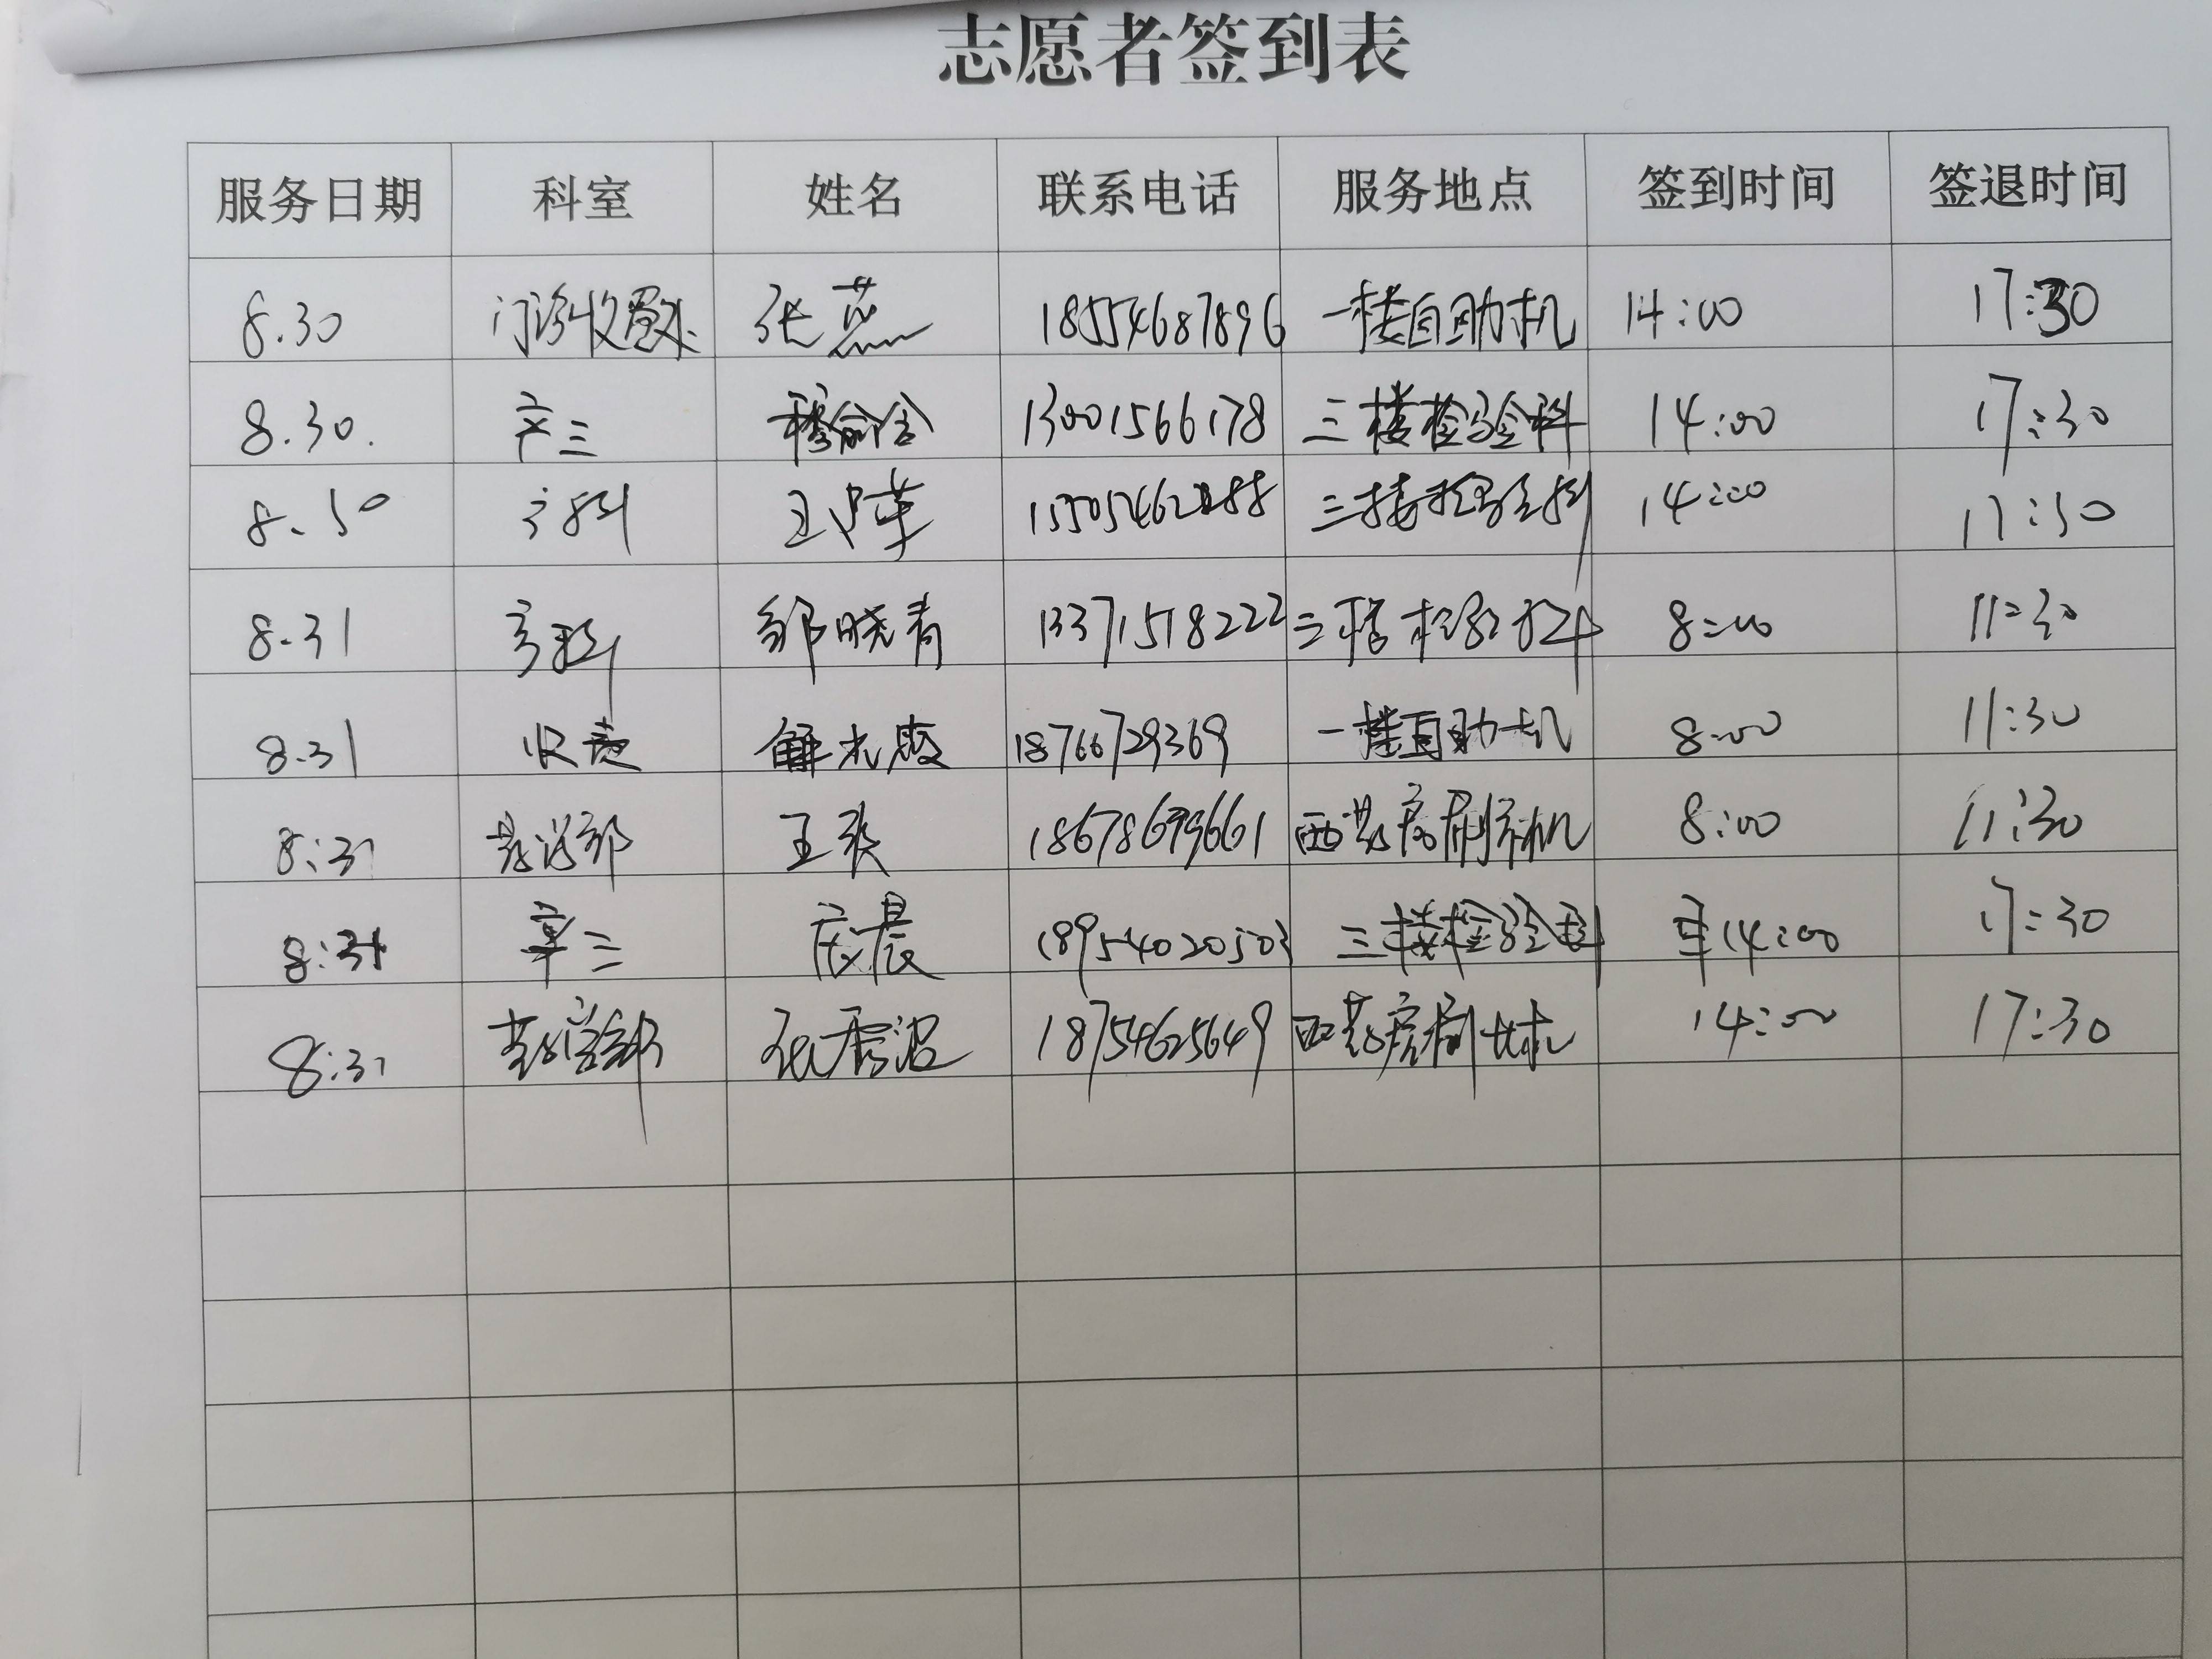 志愿者签到表
服务日期 科室 姓名 联系电话 服务地点 签到时间 签退时间
8.30 门诊收费处 张蕊 18554687896 一楼自助机 14:00 17:30
8.30. 产三 穆俞含 13001566178 三楼检验科 14:00 17:30
8.30 王 三楼检验科 14:00 17:30
8.31 邹晓青 13371518222 三楼检验科 8:00 11:30
8.31 收费 解 18766729369 一楼自助机 8:00 11:30
8:31 药学部 王 18678699661 西药房刷卡机 8:00 11:30
8:31 三 庞晨 18954020503 三楼检验科 14:00 17:30
8:31 药学部 张 18754625649 西药房刷卡机 14:00 17:30